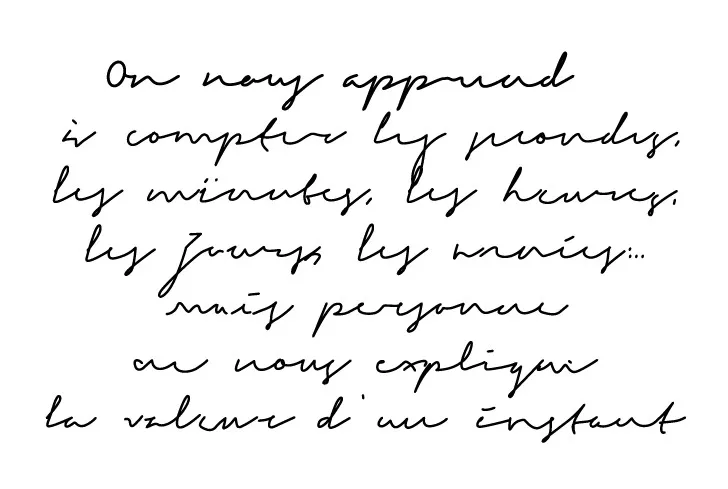 On nous apprend
à compter les secondes,
les minutes, les heures,
les jours, les années...
mais personne
ne nous explique
la valeur d'un instant